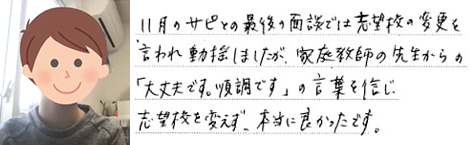 11月のサピとの最後の面談では志望校の変更を
言われ動揺しましたが、家庭教師の先生からの
「大丈夫です。順調です」の言葉を信じ
志望校を変えず、本当に良かったです。